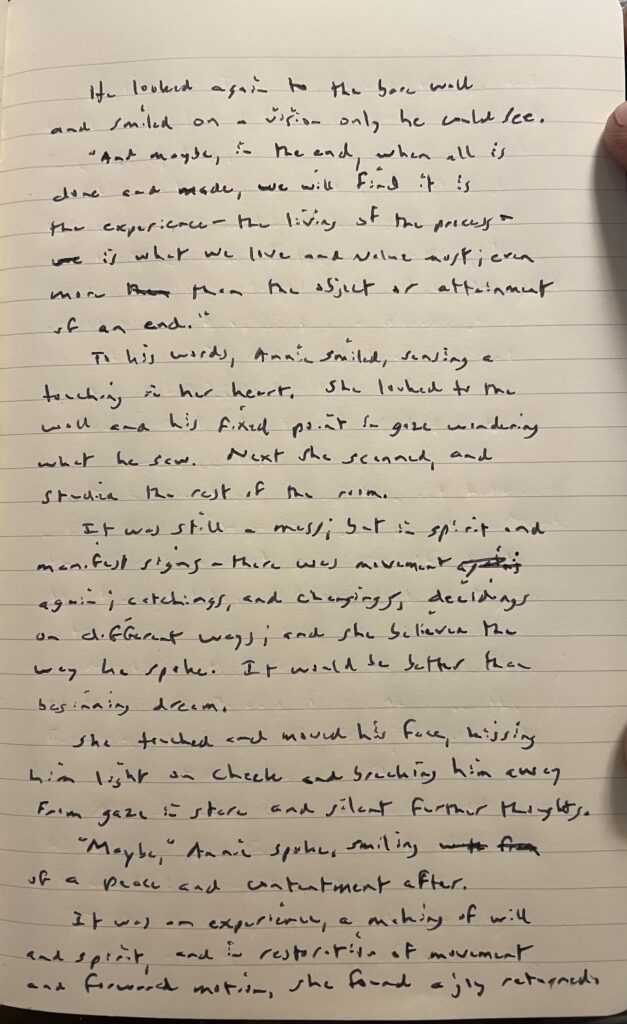 He looked again to the bare wall
and smiled on a vision only he could see.
"And maybe, in the end, when all is
done and made, we will find it is
the experience - the living of the process -
is what we love and value most; even
more than the object or attainment
of an end."
To his words, Annie smiled, sensing a
touching in her heart. She looked to the
wall and his fixed point in gaze wondering
what he saw. Next she scanned, and
studied the rest of the room.
It was still a mess; but in spirit and
manifest signs - there was movement
again; catchings, and changings, decidings
on different ways; and she believed the
way he spoke. It would be better than
beginning dream.
She touched and moved his face, kissing
him light on cheek and breaking him away
from gaze in stare and silent further thoughts.
"Maybe," Annie spoke, smiling
of a peace and contentment after.
It was an experience, a making of will
and spirit, and in restoration of movement
and forward motion, she found a joy returned.